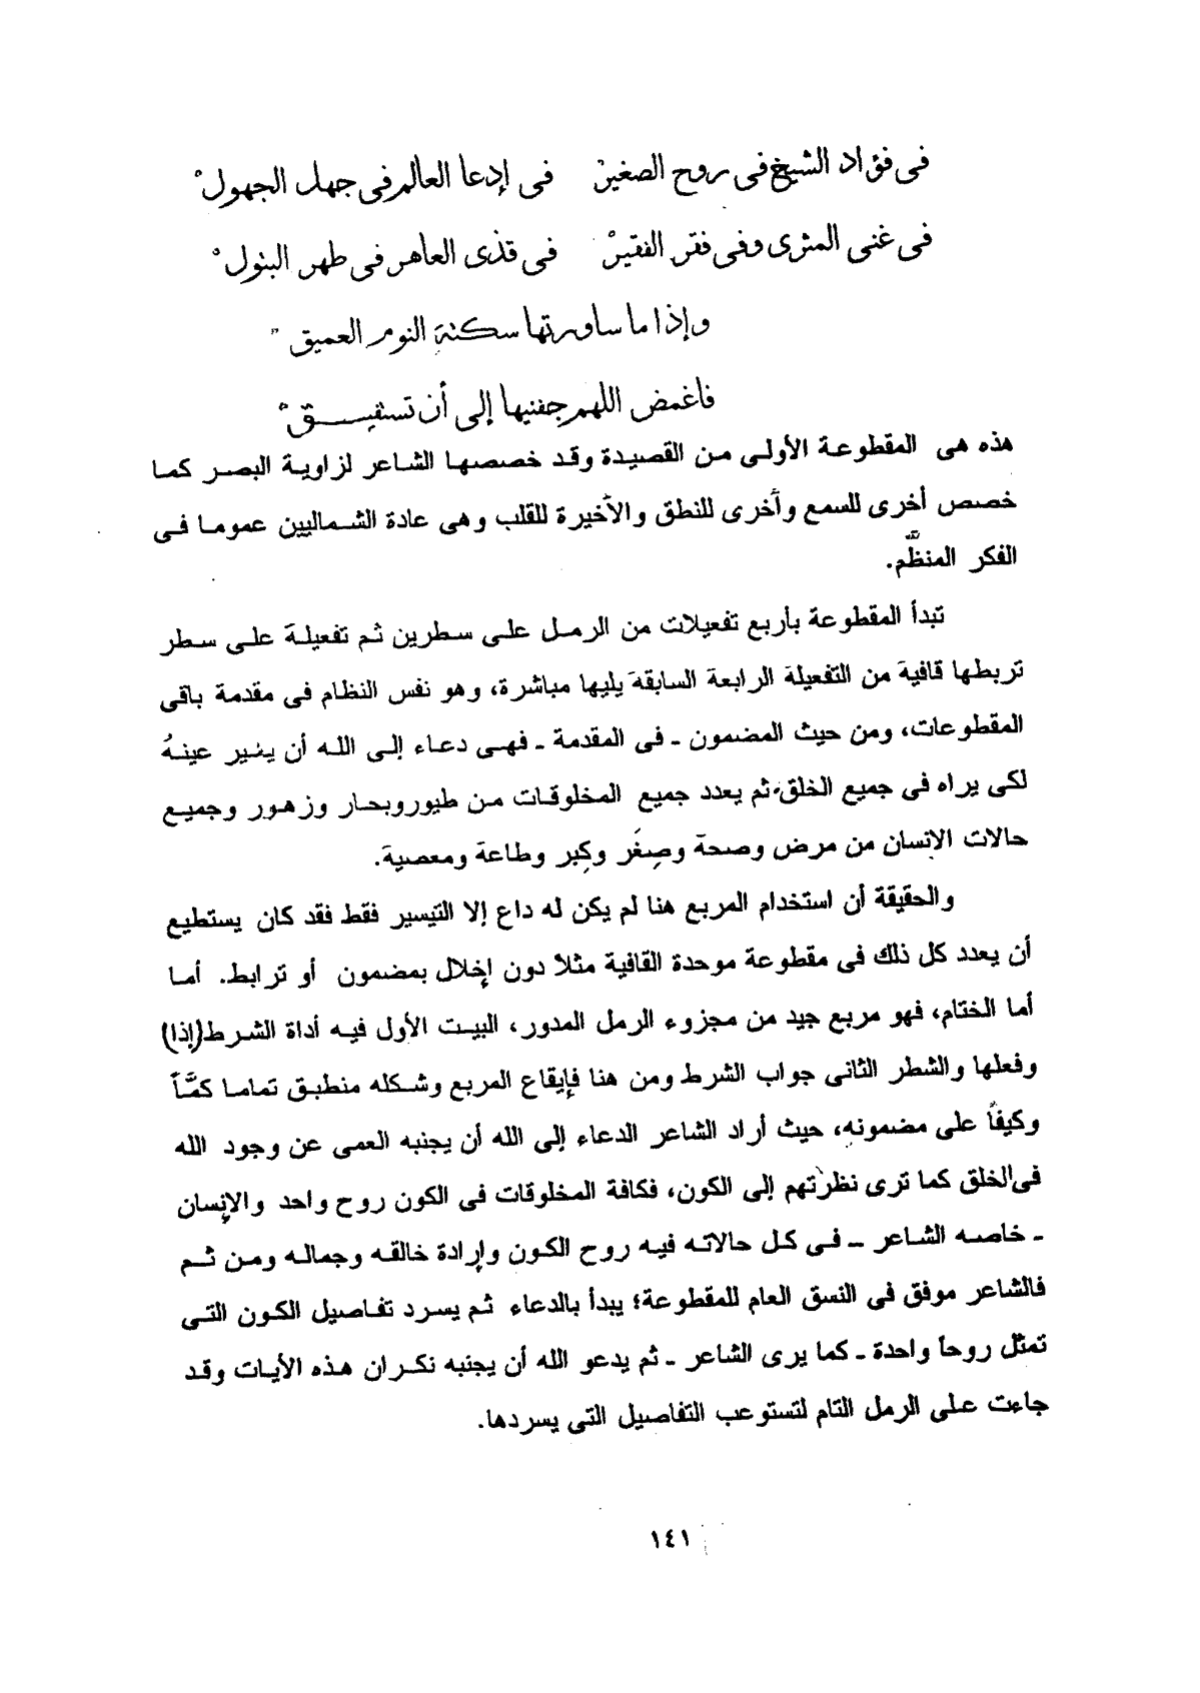 فى فؤاد الشيخ فى روح الصغيرْ فى إدعا العالم فى جهل الجهولْ
فى غنى المثرى وفى فقر الفقيرْ فى قذى العاهر فى طهر البتولْ
وإذا ما ساورتها سكتة النوم العميق
فاغمض اللهم جفنيها إلى أن تستفيــــق
هذه هى المقطوعة الأولى من القصيدة وقد خصصها الشاعر لزاوية البصر كما
خصص أخرى للسمع وأخرى للنطق والأخيرة للقلب وهى عادة الشماليين عموما فى
الفكر المنظَّم.
تبدأ المقطوعة بأربع تفعيلات من الرمل على سطرين ثم تفعيلة على سطر
تربطها قافية من التفعيلة الرابعة السابقة يليها مباشرة، وهو نفس النظام فى مقدمة باقى
المقطوعات، ومن حيث المضمون ـ فى المقدمة ـ فهى دعاء إلى الله أن ينير عينهُ
لكى يراه فى جميع الخلق، ثم يعدد جميع المخلوقات من طيور وبحار وزهور وجميع
حالات الإنسان من مرض وصحة وصِغَر وكِبر وطاعة ومعصية.
والحقيقة أن استخدام المربع هنا لم يكن له داع إلا التيسير فقط فقد كان يستطيع
أن يعدد كل ذلك فى مقطوعة موحدة القافية مثلاً دون إخلال بمضمون أو ترابط. أما
أما الختام، فهو مربع جيد من مجزوء الرمل المدور، البيت الأول فيه أداة الشرط(إذا)
وفعلها والشطر الثانى جواب الشرط ومن هنا فإيقاع المربع وشكله منطبق تماما كمًّاً
وكيفاً على مضمونه، حيث أراد الشاعر الدعاء إلى الله أن يجنبه العمى عن وجود الله
فى الخلق كما ترى نظرتهم إلى الكون، فكافة المخلوقات فى الكون روح واحد والإنسان
ـ خاصه الشاعر ــ فى كل حالاته فيه روح الكون وإرادة خالقه وجماله ومن ثم
فالشاعر موفق فى النسق العام للمقطوعة؛ يبدأ بالدعاء ثم يسرد تفاصيل الكون التى
تمثل روحاً واحدة ـ كما يرى الشاعر ـ ثم يدعو الله أن يجنبه نكران هذه الأيات وقد
جاءت على الرمل التام لتستوعب التفاصيل التى يسردها.
١٤١